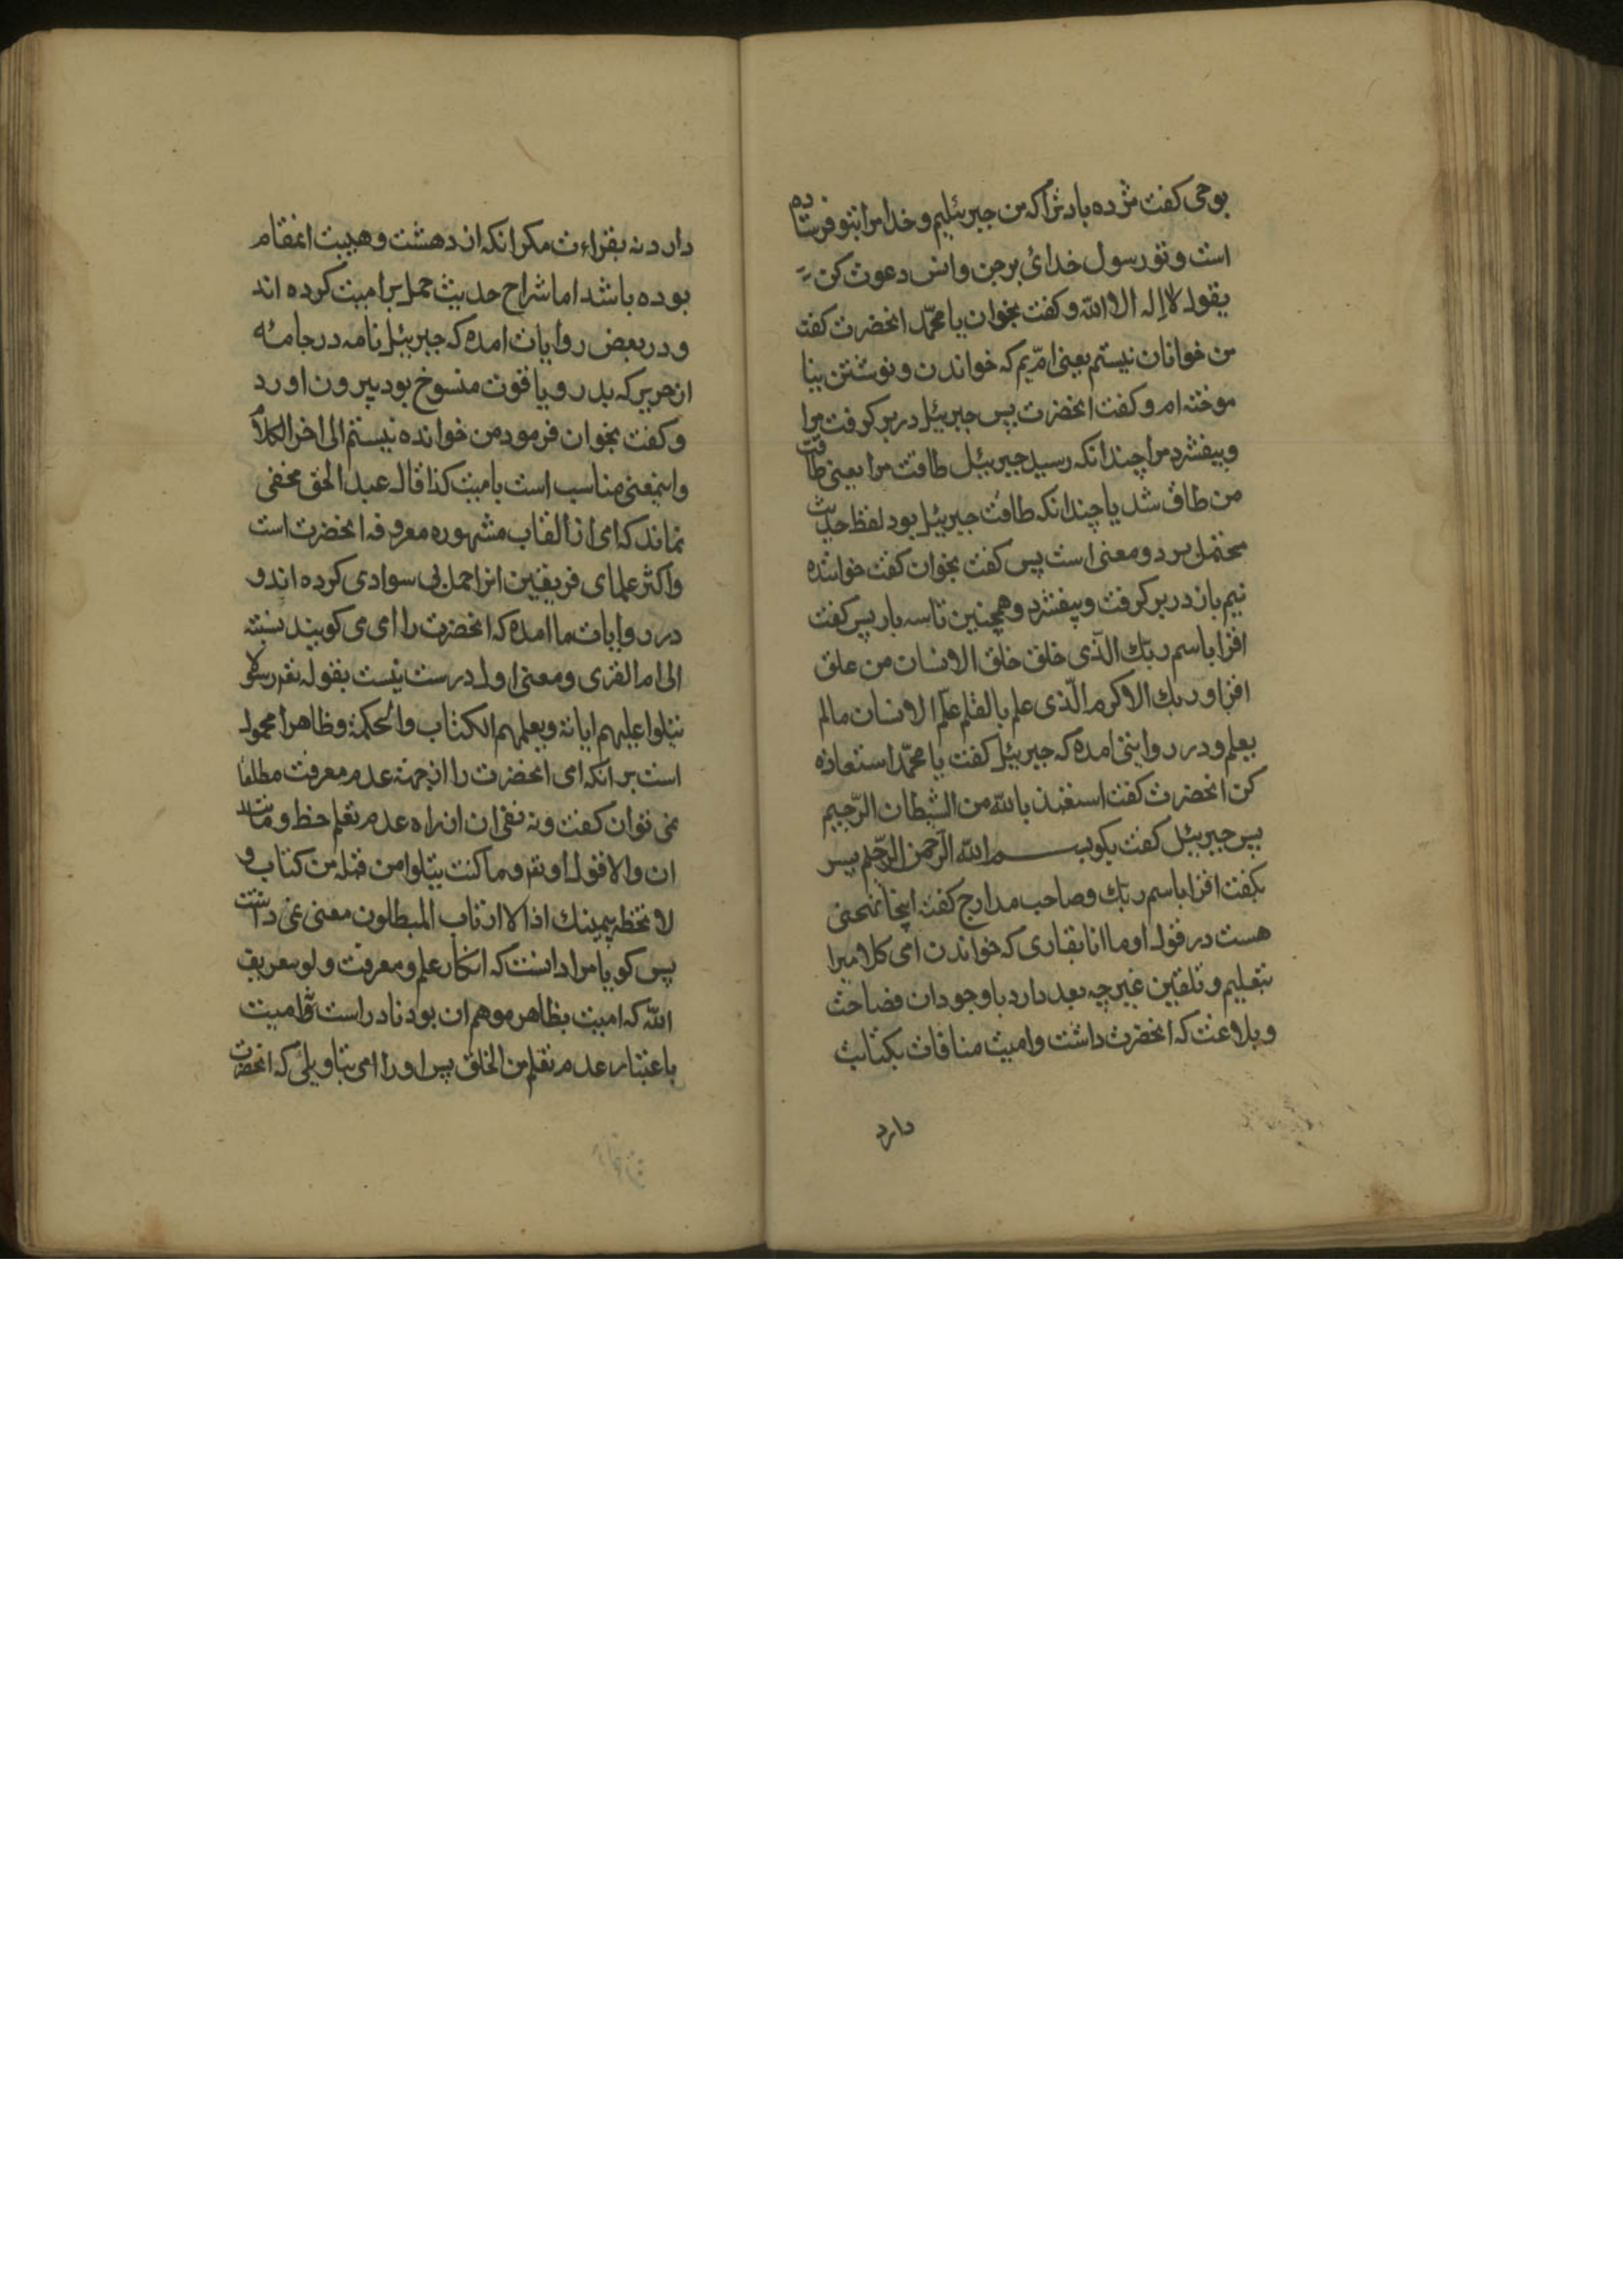 بوحی کفت مژده باد ترا که من جبرئیلیم و خدا مرا بتو فرستاده
است و تو رسول خدائ بر جن و انس دعوت کن
بقول لا اله الا الله و کفت بخوان یا محمّد انحضرت کفت
من خوانان نیستم یعنی امّیم که خواندن و نوشتن نیا
موخته ام و کفت انحضرت پس جبرئیل در بر کرفت مرا
و بیفشرد مرا چندانکه رسید جبرئیل طاقت مرا یعنی طاقت
من طاق شد یا چندانکه طاقت جبرئیل بود لفظ حدیث
محتمل هر دو معنی است پس کفت بخوان کفت خواننده
نیم باز در بر کرفت و بیفشرد و همچنین تا سه بار پس کفت
اقرا باسم ربّك الّذی خلق خلق الانسان من علق
اقرا و ربك الاکرم الّذی علم بالقلم علّم الانسان مالم
یعلم و در روایتی امده که جبرئیل کفت یا محمّد استعاذه
کن انحضرت کفت استعذ بالله من الشیطان الرّجیم
پس جبرئیل کفت بکو بسم الله الرّحمن الرّحیم پس
بکفت اقرا باسم ربك و صاحب مدارج کفته اینجا
هست در قول او ما انا بقاری که خواندن امی کلامیرا
بتعلیم و تلقین غیر چه بعد دارد با وجود ان فصاحت
و بلاغت که انحضرت داشت و امیت منافات بکتابت
دارد
دارد نه بقراءت مکر انکه از دهشت و هیبت انمقام
بوده باشد اما شراح حدیث حمل بر امیت کرده اند
و در بعض روایات امده که جبرئیل نامه در جامئه
از حریر که بدر و یاقوت منسوخ بود بیرون اورد
و کفت بخوان فرمود من خوانده نیستم الی اخر الکلام
و اینمعنی مناسب است بامیت کذا قال عبد الحق مخفی
نماند که امی از القاب مشهوره معروفه انحضرت است
و اکثر علمای فریقین انرا حمل بی سوادی کرده اند و
در روایات ما امده که انحضرت را امی می کویند نسبته
الی ام القری و معنی اول درست نیست بقوله تعه رسولا
یتلوا علیهم ایاته و یعلمهم الکتاب والحکمة و ظاهرا محمول
است بر انکه امی انحضرت را از جهته عدم معرفت مطلقا
نمی توان کفت و نه نفی ان از راه عدم تعلم خط و
ان والا قول او تعه و ما کنت یتلوا من قبله من کتاب و
لا تخطه بیمینك اذا لا ارتاب المبطلون معنی نمی داشت
پس کویا مراد انست که انکار علم و معرفت و لو بتعریف
الله که امیت بظاهر موهم ان بود نادر است و امیت
باعتبار عدم تعلم من الخلق پس او را امی بتاویلی که انحضرت